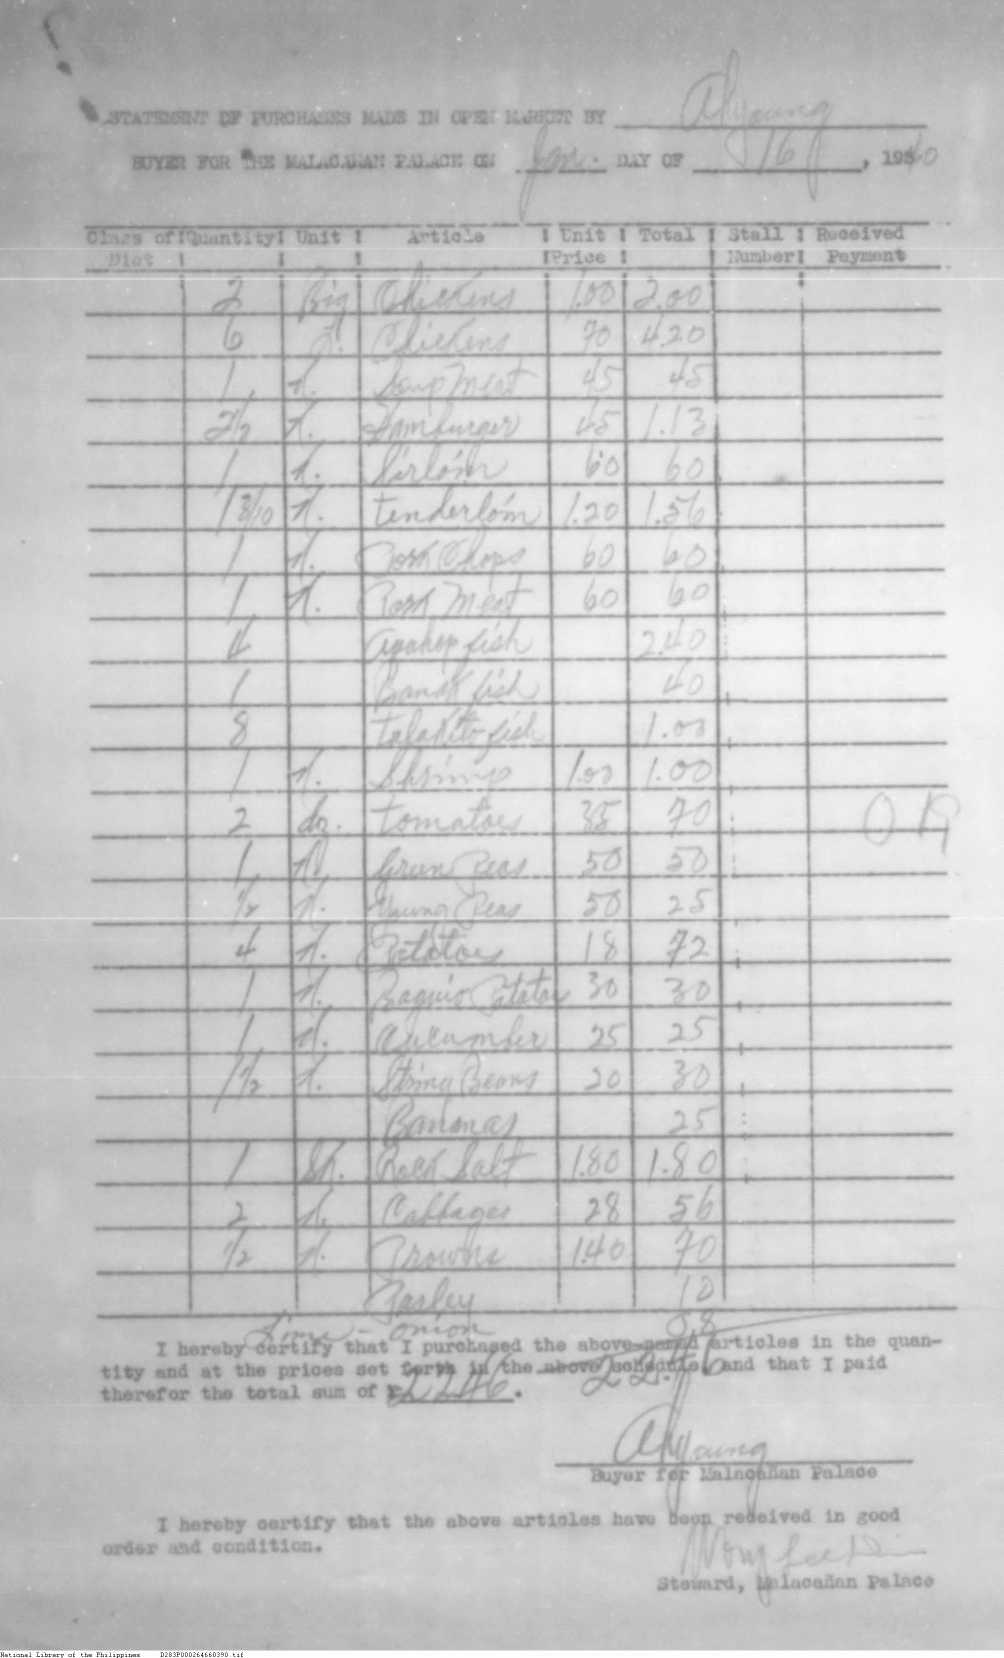 STATEMENT OF PURCHASES MADE IN OPEN MARKET BY Ahyoung
BUYER FOR THE MALACAÑAN PALACE ON Jan. DAY OF 16, 1940
Class of Diet Quantity Unit Article Unit Price Total Stall Number Received Payment
2 Big Chickens 1.00 2.00
6 Chickens 70 4.20
1 K. Soup Meat 45 45
2 1/2 K. Hamburger 45 1.13
1 K. Sirloin 60 60
1 3/10 K. tenderloin 1.20 1.56
1 K. Pork Chops 60 60
1 K. Pork Meat 60 60
4 Apahap fish 2.40
1 fish 40
8 talakito fish 1.00
1 K. Shrimp 1.00 1.00
2 dz. tomatoes 35 70
1 K. Green Peas 50 50
1/2 K. Young Peas 50 25
4 K. Potatoes 18 72
1 K. Baguio Potatoes 30 30
1 K. Cucumber 25 25
1 1/2 K. String Beans 20 30
Bananas 25
1 Sk. Rock Salt 1.80 1.80
2 K. Cabbages 28 56
1/2 K. Prowns 1.40 70
Parsley 10
onion
O K
I hereby certify that I purchased the above-named articles in the quan-
tity and at the prices set forth in the above schedule, and that I paid
22.46
therefor the total sum of ₱22.46.
Ahyoung
Buyer for Malacañan Palace
I hereby certify that the above articles have been received in good
order and condition.
Steward, Malacañan Palace
National Library of the Philippines D283P000264660390.tif